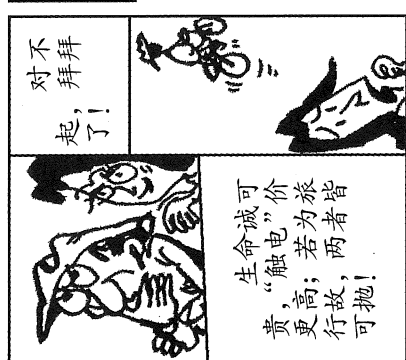 对不
起，拜拜
了！
生命诚可
贵，“触电”价
更高；若为旅
行故，两者皆
可抛！